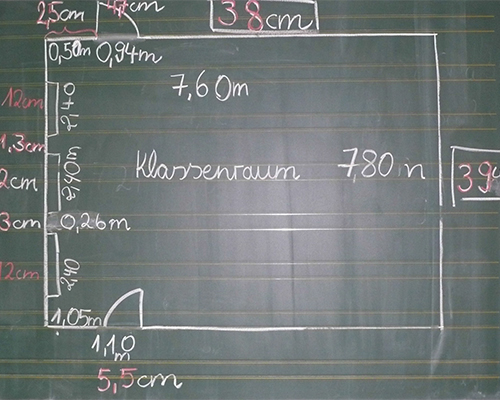 2,5cm 4,7cm 38cm
0,50m 0,94m
7,60m
12cm 2,40
1,3cm
Klassenraum 7,80m
2cm 2,40m
39
3cm 0,26m
12cm 2,40
1,05m
1,10
m
5,5cm